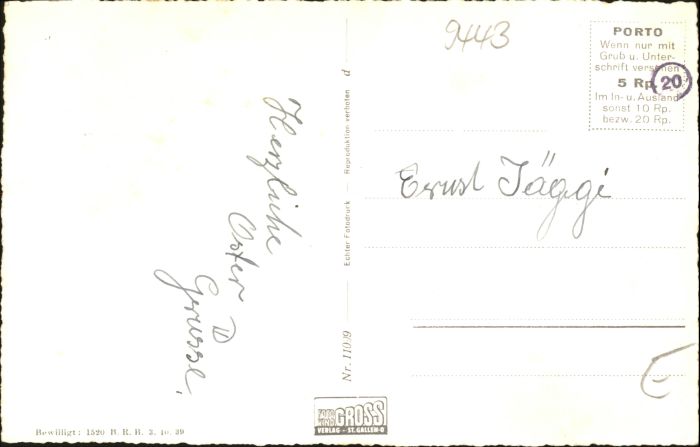 9443
PORTO
Wenn nur mit
Gruß u. Unter-
schrift versehen
5 Rp.
Im In- u. Ausland
sonst 10 Rp.
bezw. 20 Rp.
20
Herzliche
Oster
Grüsse.
Ernst Jäggi
Echter Fotodruck — Reproduktion verboten d
Nr. 11009
GROSS
VERLAG - ST. GALLEN-O
Bewilligt: 1520 B. R. B. 3. 10. 39